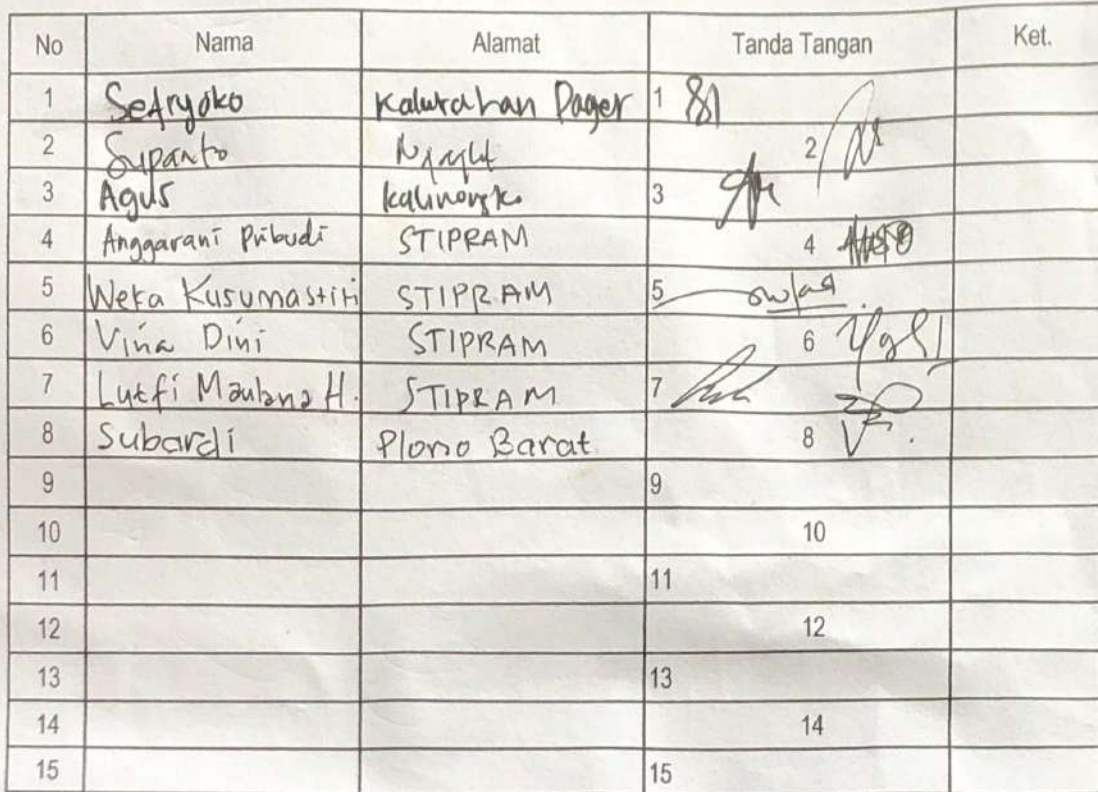 No Nama Alamat Tanda Tangan Ket.
1 Setyoko Kalurahan Pager 1
2 Supanto 2
3 Agus Kalinongko 3
4 Anggarani Pribudi STIPRAM 4
5 Weka Kusumastiti STIPRAM 5
6 Vina Dini STIPRAM 6
7 Lutfi Maulana H. STIPRAM 7
8 Subardi Plono Barat 8
9 9
10 10
11 11
12 12
13 13
14 14
15 15